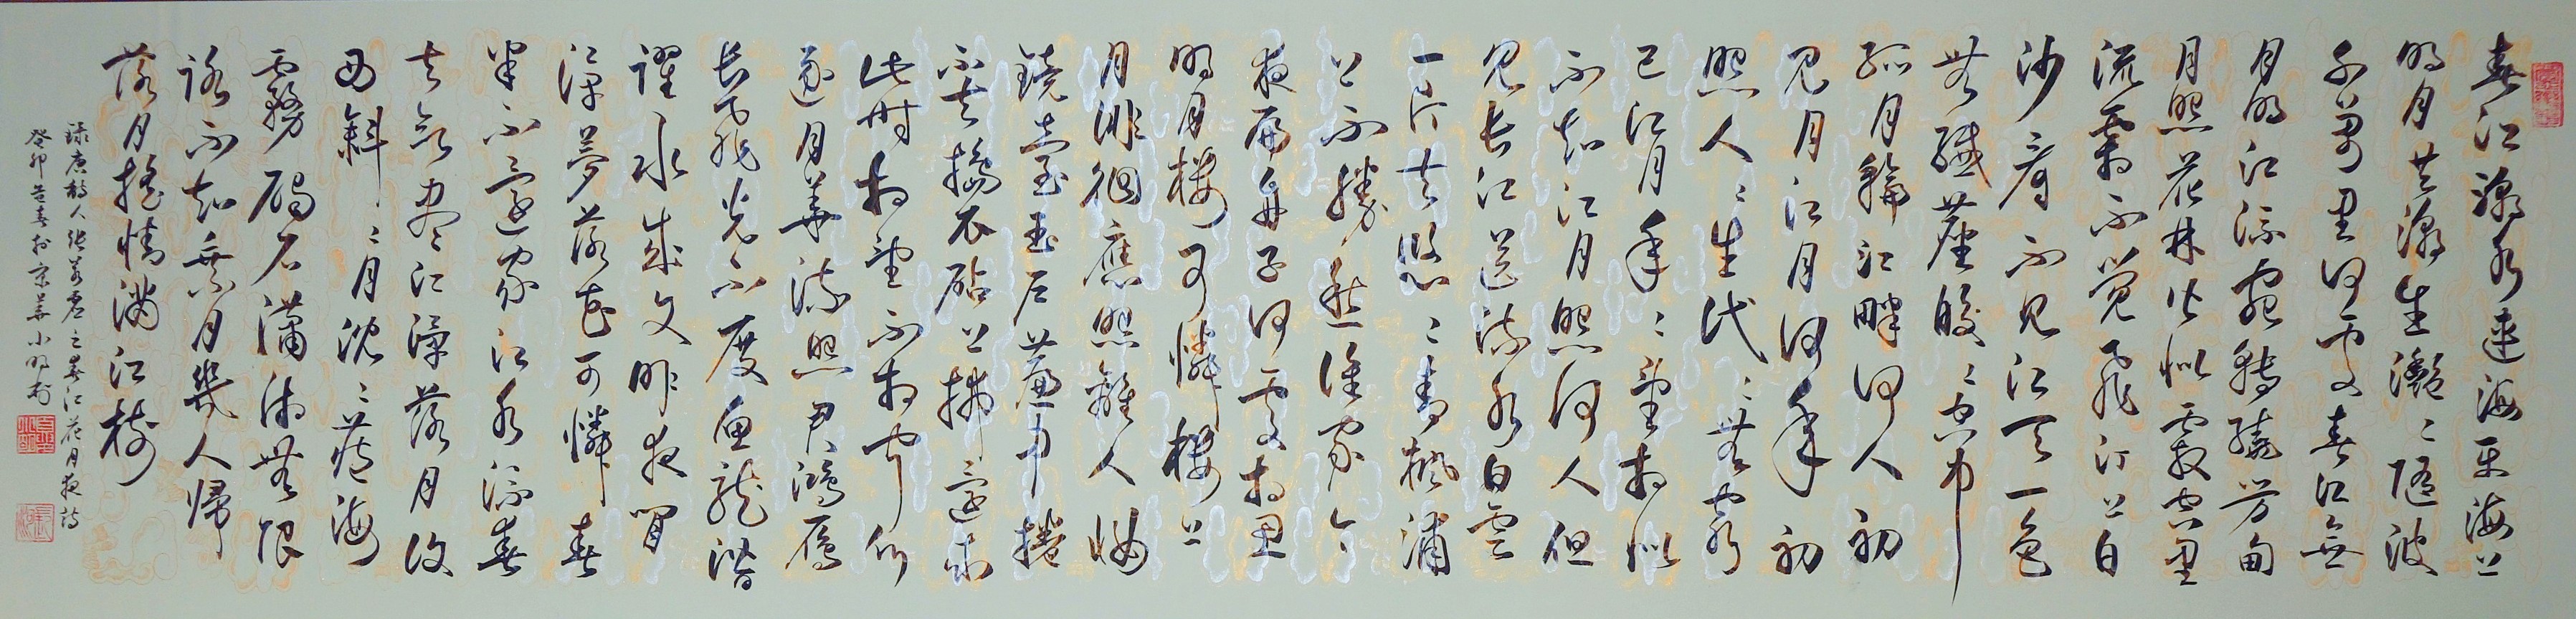 春江潮水連海平海上
明月共潮生灩〻隨波
千萬里何處春江無
月明江流宛轉繞芳甸
月照花林皆似霰空里
流霜不覺飛汀上白
沙看不見江天一色
無纖塵皎〻空中
孤月輪江畔何人初
見月江月何年初
照人〻生代〻無窮
已江月年〻望相似
不知江月照何人但
見長江送流水白雲
一片去悠〻青楓浦
上不勝愁誰家今
夜扁舟子何處相思
明月樓可憐樓上
月徘徊應照離人妝
鏡臺玉戶簾中捲
不去搗衣砧上拂還來
此時相望不相聞願
逐月華流照君鴻雁
長飛光不度魚龍潛
躍水成文昨夜閒
潭夢落花可憐春
半不還家江水流春
去欲盡江潭落月復
西斜〻月沈〻藏海
霧碣石瀟湘無限
路不知乘月幾人歸
落月搖情滿江樹
錄唐詩人張若虛之春江花月夜詩
癸卯春於京華小明